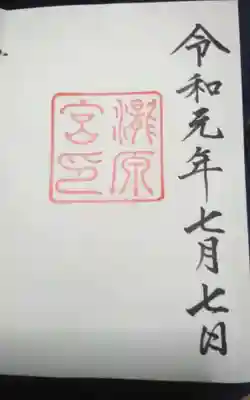 令和元年七月七日
瀧原
宮印